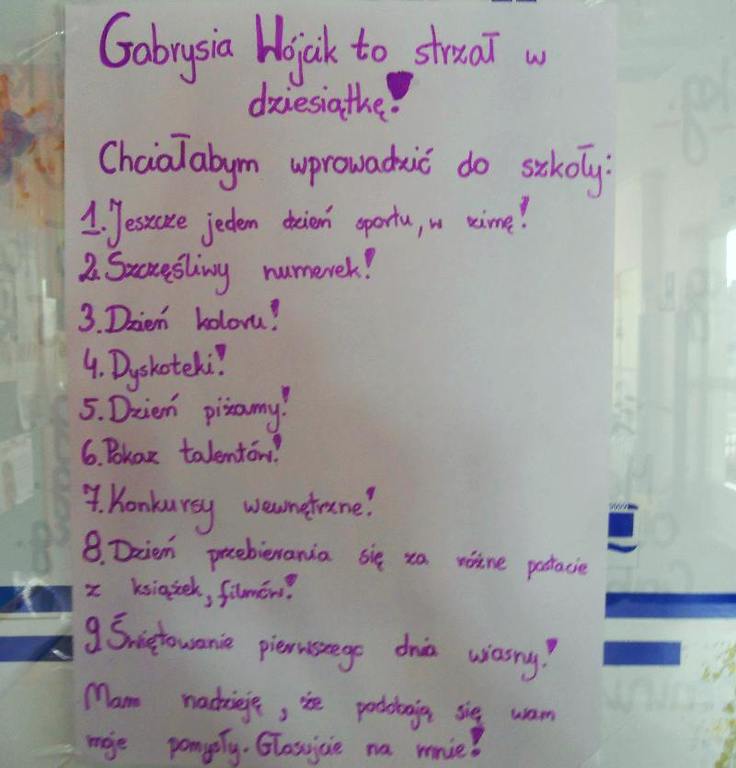 Gabrysia Wójcik to strzał w
dziesiątkę!
Chciałabym wprowadzić do szkoły:
1. Jeszcze jeden dzień sportu, w zimę!
2. Szczęśliwy numerek!
3. Dzień koloru!
4. Dyskoteki!
5. Dzień piżamy!
6. Pokaz talentów!
7. Konkursy wewnętrzne!
8. Dzień przebierania się za różne postacie
z książek, filmów!
9 Świętowanie pierwszego dnia wiosny!
Mam nadzieję, że podobają się wam
moje pomysły. Głosujcie na mnie!